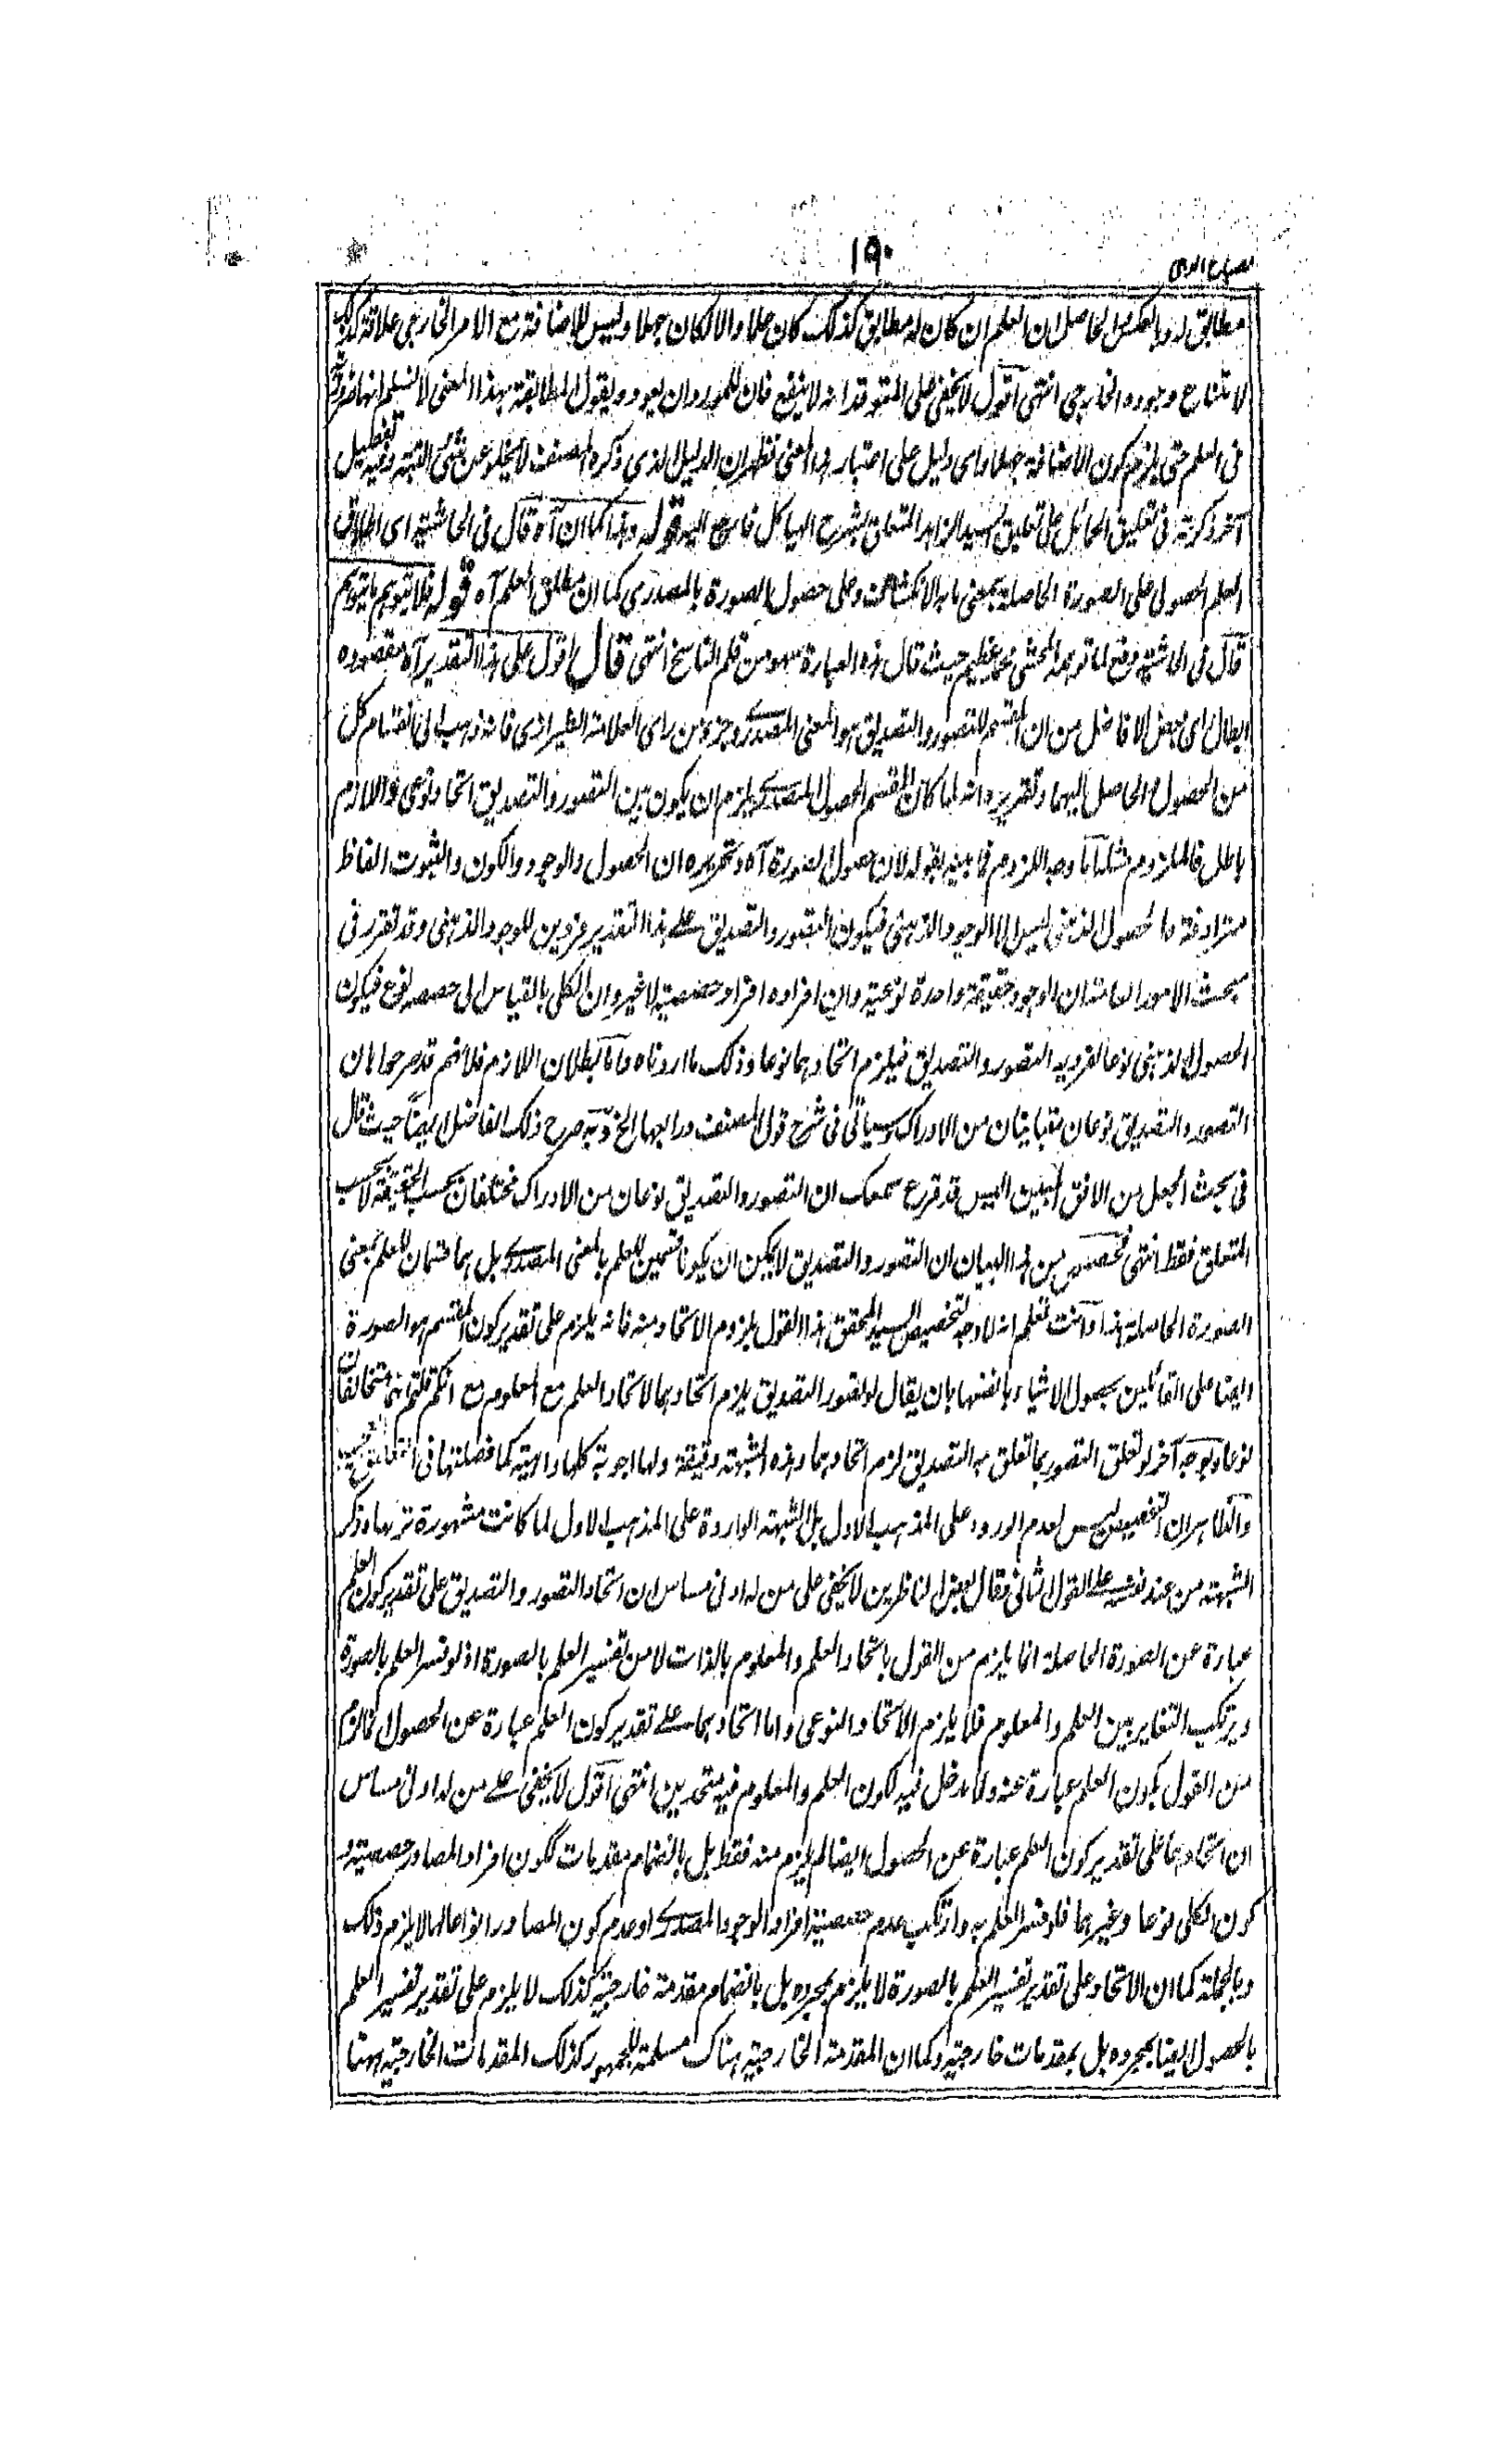 ١٩٠
مصباح الدجى
مطابق له وبالعكس الحاصل ان العلم ان كان له مطابق كذلك كان علما والا لكان جهلا وليس للاضافة مع الامر الخارجي علاقة كذلك
لامتناع وجوده الخارجي انتهى اقول لا يخفى على المتوقد انه لا ينفع فان للمورد ان يعود ويقول المطابقة بهذا المعنى لا نسلم انها ضرورية
فى العلم حتى يلزم كون الاضافة جهلا واى دليل على اعتبار هذا المعنى فظهر ان الدليل الذى ذكره المصنف لا يخلو عن شئ البتة وفيه تفصيل
آخر ذكرته فى تعليق الحائل على تعليق السيد الزاهد المتعلق بشرح الهياكل فارجع اليه قوله وهذا كما ان آه قال فى الحاشية اى اطلاق
العلم الحصولى على الصورة الحاصلة بمعنى ما به الانكشاف وعلى حصول الصورة بالمصدرى كما ان مطلق العلم آه قوله فلا يتوهم ما يتوهم
قال فى الحاشية دفع لما توهمه المحشى محمد عظيم حيث قال هذه العبارة سهو من قلم الناسخ انتهى قال اقول على هذا التقدير آه مقصوده
ابطال راى بعض الافاضل من ان المقسم للتصور والتصديق هو المعنى المصدرى وجزء من راى العلامة الشيرازى فانه ذهب الى انقسام كل
من الحصول والحاصل اليهما وتقريره انه لما كان المقسم الحصول المصدرى يلزم ان يكون بين التصور والتصديق اتحاد نوعى واللازم
باطل فالملزوم مثله اما وجه اللزوم فما بينه بقوله لان حصول الصورة آه وتحريره ان الحصول والوجود والكون والثبوت الفاظ
مترادفة فالحصول الذهنى ليس الا الوجود الذهنى فيكون التصور والتصديق على هذا التقدير فردين للوجود الذهنى وقد تقرر فى
مبحث الامور العامة ان الوجود حقيقة واحدة نوعية وان افراده افراد حصصية لا غير وان الكلى بالقياس الى حصصه نوع فيكون
الحصول الذهنى نوعا لفرديه التصور والتصديق فيلزم اتحادهما نوعا وذلك ما اردناه واما بطلان اللازم فلانهم قد صرحوا بان
التصور والتصديق نوعان متباينان من الادراك وسياتى فى شرح قول المصنف ورابعها الخ وبه صرح ذلك الفاضل ايضا حيث قال
فى بحث الجعل من الافق المبين اليس قد قرع سمعك ان التصور والتصديق نوعان من الادراك مختلفان بحسب الحقيقة لا بحسب
المتعلق فقط انتهى فحصحص من هذا البيان ان التصور والتصديق لا يمكن ان يكونا قسمين للعلم بالمعنى المصدرى بل هما قسمان للعلم بمعنى
الصورة الحاصلة هذا وانت تعلم انه لا وجه لتخصيص السيد المحقق هذا القول بلزوم الاتحاد منه فانه يلزم على تقدير كون المقسم هو الصورة
ايضا على القائلين بحصول الاشياء بانفسها بان يقال لو تصور التصديق يلزم اتحادهما لاتحاد العلم مع المعلوم مع انكم قلتم انهما متخالفان
نوعا وبوجه آخر لو تعلق التصور بما تعلق به التصديق لزم اتحادهما وهذه الشبهة دقيقة ولها اجوبة كلها واهية كما فصلتها فى
والظاهر ان التخصيص ليس لعدم الورود على المذهب الاول بل الشبهة الواردة على المذهب الاول لما كانت مشهورة تركها وذكر
الشبهة من عند نفسه على القول الثانى فقال بعض الناظرين لا يخفى على من له ادنى مساس ان اتحاد التصور والتصديق على تقدير كون العلم
عبارة عن الصورة الحاصلة انما يلزم من القول باتحاد العلم والمعلوم بالذات لا من تفسير العلم بالصورة اذ لو فسر العلم بالصورة
ويرتكب التغاير بين العلم والمعلوم فلا يلزم الاتحاد النوعى واما اتحادهما على تقدير كون العلم عبارة عن الحصول فالزم
من القول بكون العلم عبارة عنه ولا مدخل فيه لكون العلم والمعلوم فيه متحدين انتهى اقول لا يخفى على من له ادنى مساس
ان اتحادهما على تقدير كون العلم عبارة عن الحصول ايضا لم يلزم منه فقط بل بانضمام مقدمات ككون افراد المصادر حصصية و
كون الكلى نوعا وغيرهما فلو فسر العلم به وارتكب عدم حصصية افراد الوجود المصدرى او عدم كون المصادر انواعا لها لا يلزم ذلك
وبالجملة كما ان الاتحاد على تقدير تفسير العلم بالصورة لا يلزم بمجرده بل بانضمام مقدمة خارجية كذلك لا يلزم على تقدير تفسير العلم
بالحصول ايضا بمجرده بل بمقدمات خارجية وكما ان المقدمة الخارجية هناك مسلمة للجمهور كذلك المقدمات الخارجية ههنا